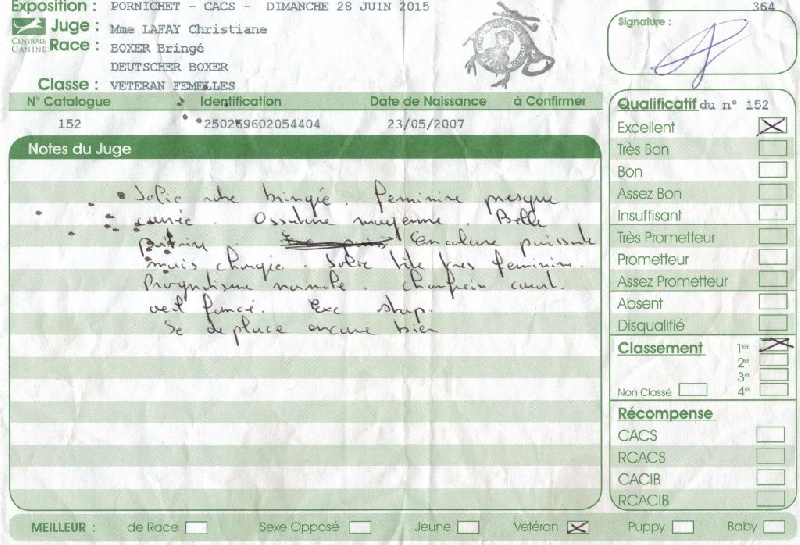 Exposition : PORNICHET - CACS - DIMANCHE 28 JUIN 2015
364
CENTRALE CANINE
Juge : Mme LAFAY Christiane
Race : BOXER Bringé
DEUTSCHER BOXER
Classe : VETERAN FEMELLES
Signature :
N° Catalogue Identification Date de Naissance à Confirmer
152 250269602054404 23/05/2007
Notes du Juge
Jolie robe bringée. feminine presque
carrée. Ossature moyenne. Belle
poitrine. Encolure puissante
mais chargée. Jolie tête très feminine.
Prognatisme normale. chanfrein court.
oeil foncé. Exc stop.
Se deplace encore bien
Qualificatif du n° 152
Excellent
Très Bon
Bon
Assez Bon
Insuffisant
Très Prometteur
Prometteur
Assez Prometteur
Absent
Disqualifié
Classement 1er
2e
3e
Non Classé 4e
Récompense
CACS
RCACS
CACIB
RCACIB
MEILLEUR : de Race Sexe Opposé Jeune Vétéran Puppy Baby